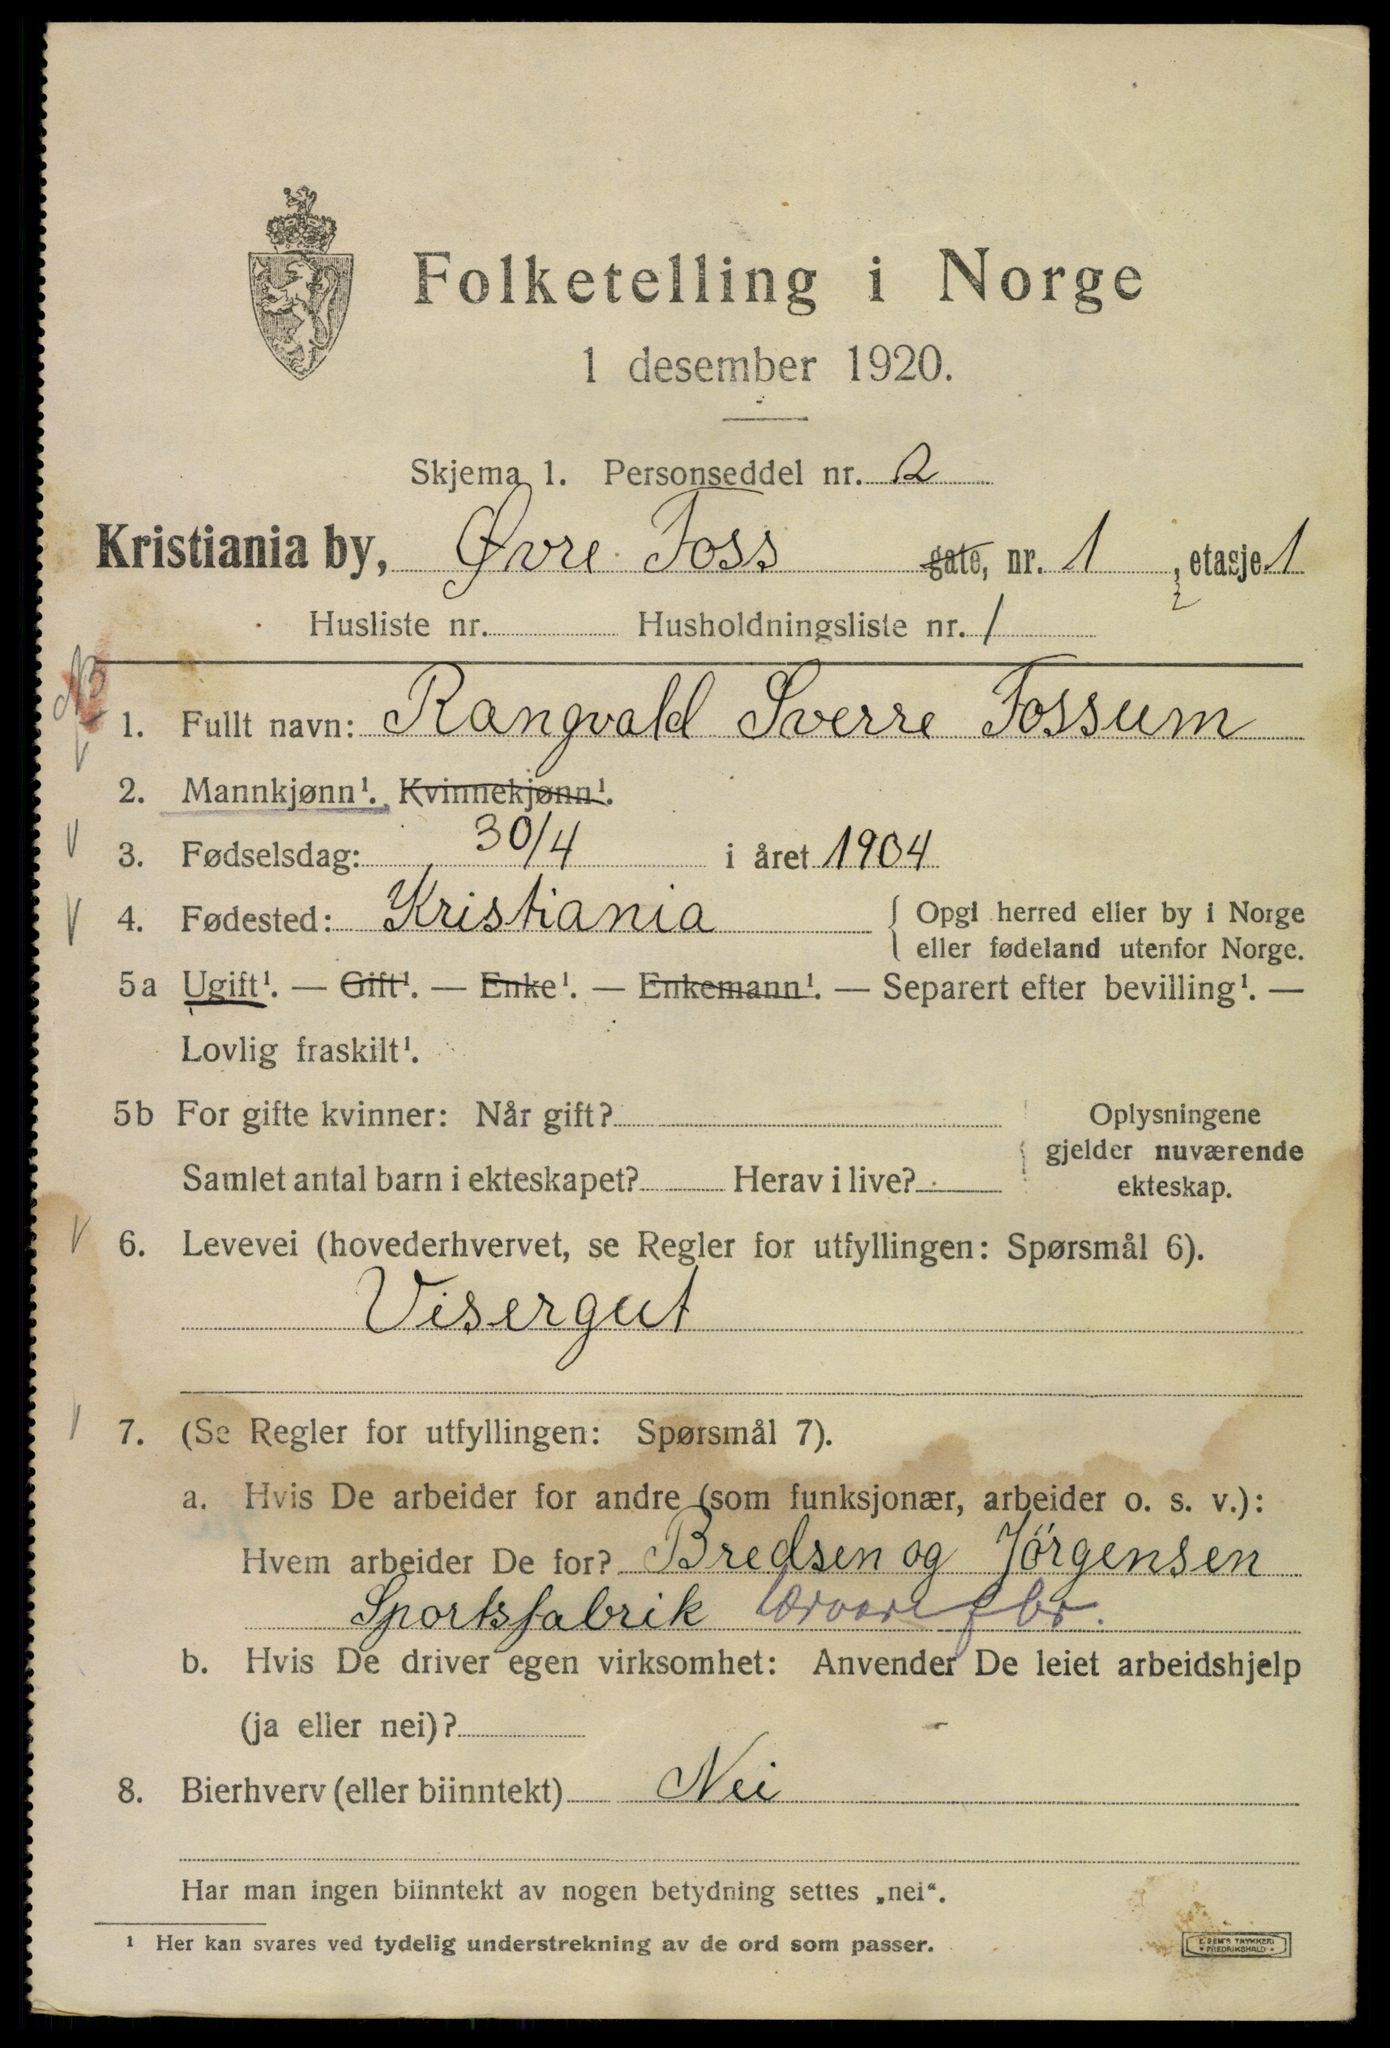 Folketelling i Norge
1 desember 1920.
Skjema 1. Personseddel nr. 2
Kristiania by, Øvre Foss gate, nr. 1, etasje 1
2
Husliste nr. Husholdningsliste nr. 1
NB
1. Fullt navn: Rangvald Sverre Fossum
2. Mannkjønn¹. Kvinnekjønn¹.
3. Fødselsdag: 30/4 i året 1904
4. Fødested: Kristiania { Opgi herred eller by i Norge
eller fødeland utenfor Norge.
5a Ugift¹. — Gift¹. — Enke¹. — Enkemann¹. — Separert efter bevilling¹. —
Lovlig fraskilt¹.
5b For gifte kvinner: Når gift? Oplysningene
gjelder nuværende
Samlet antal barn i ekteskapet? Herav i live? ekteskap.
6. Levevei (hovederhvervet, se Regler for utfyllingen: Spørsmål 6).
Visergut
7. (Se Regler for utfyllingen: Spørsmål 7).
a. Hvis De arbeider for andre (som funksjonær, arbeider o. s. v.):
Hvem arbeider De for? Bredsen og Jörgensen
Sportsfabrik lærvarefbr.
b. Hvis De driver egen virksomhet: Anvender De leiet arbeidshjelp
(ja eller nei)?
8. Bierhverv (eller biinntekt) Nei
Har man ingen biinntekt av nogen betydning settes „nei“.
¹ Her kan svares ved tydelig understrekning av de ord som passer.
E. SEM'S TRYKKERI
FREDRIKSHALD